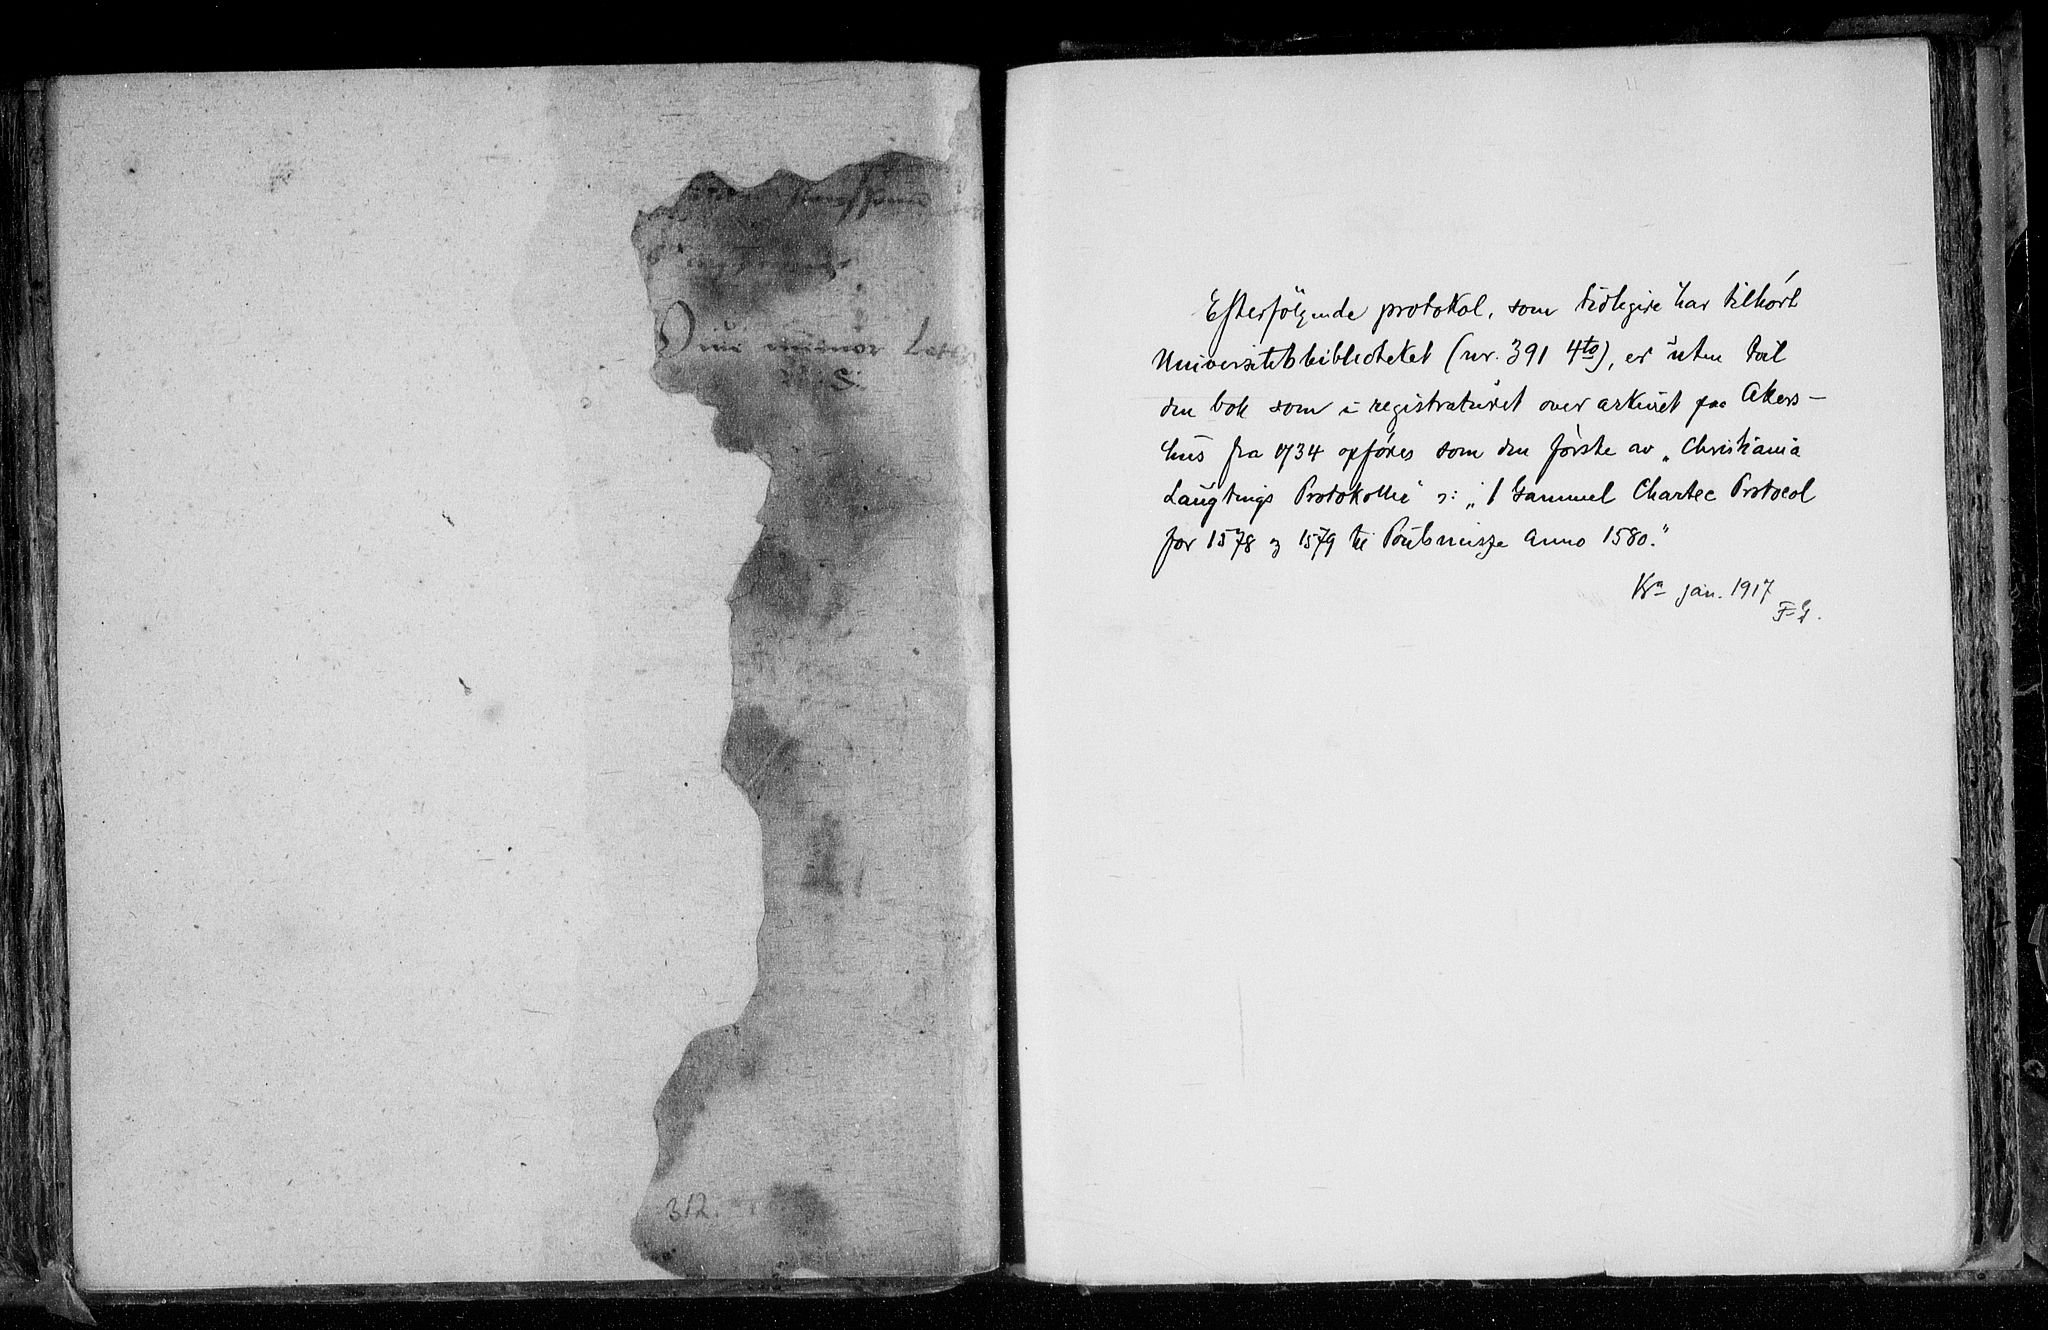 Oui minor Lett
312.
Efterfölgende protokol, som tidligere har tilhört
Universitetsbiblioteket (nr. 391 4to), er uten tvil
den bok som i registraturet over arkivet paa Akers-
hus fra 1734 opföres som den förste av „Christiania
Laugtings Protokoller" ɔ: „1 Gammel Chartec Protocol
for 1578 og 1579 til Paulsmisse Anno 1580."
Kra jan. 1917
F G.